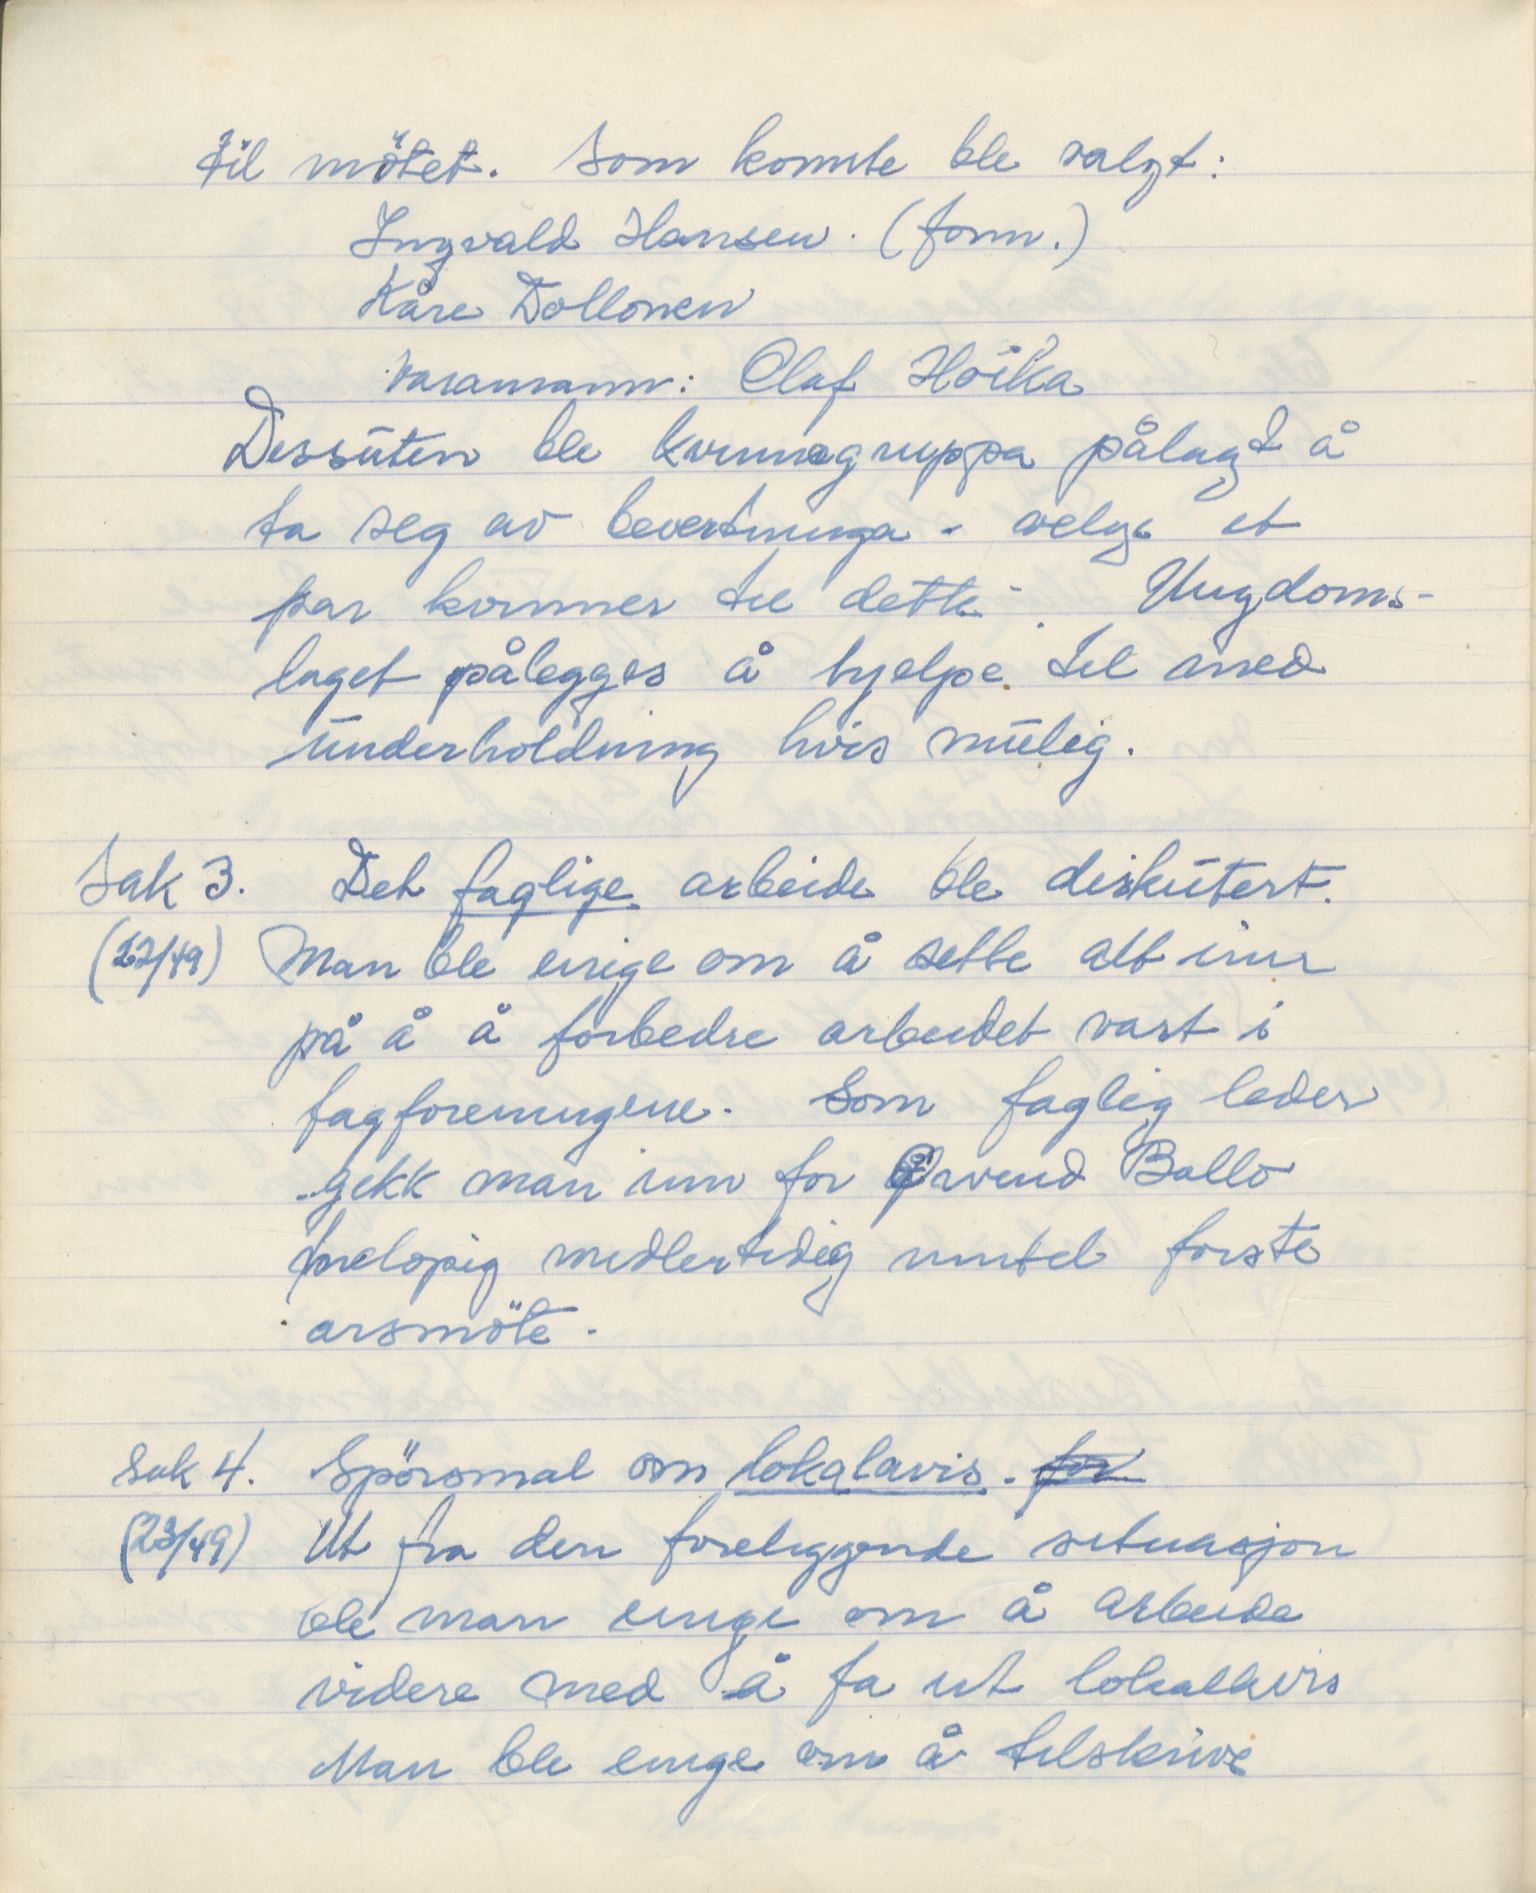 til mötet. Som komite ble valgt:
Ingvald Hansen. (form.)
Kåre Dollonen
varamann: Olaf Höika
Dessuten ble kvinnegruppa pålagt å
ta seg av bevertninga - velge et
par kvinner til dette -. Ungdoms-
laget pålegges å hjelpe til med
underholdning hvis mulig.
Sak 3. Det faglige arbeide ble diskutert.
(22/49) Man ble enige om å sette alt inn
på å å forbedre arbeidet vart i
fagforeningene. Som faglig leder
gekk man inn for Øivend Ballo
medlertidig inntil forste
arsmöte.
Sak 4. Spörsmal om lokalavis. for
(23/49) Ut fra den foreliggende situasjon
ble man enige om å arbeide
videre med å fa ut lokalavis
Man ble enige om å tilskrive